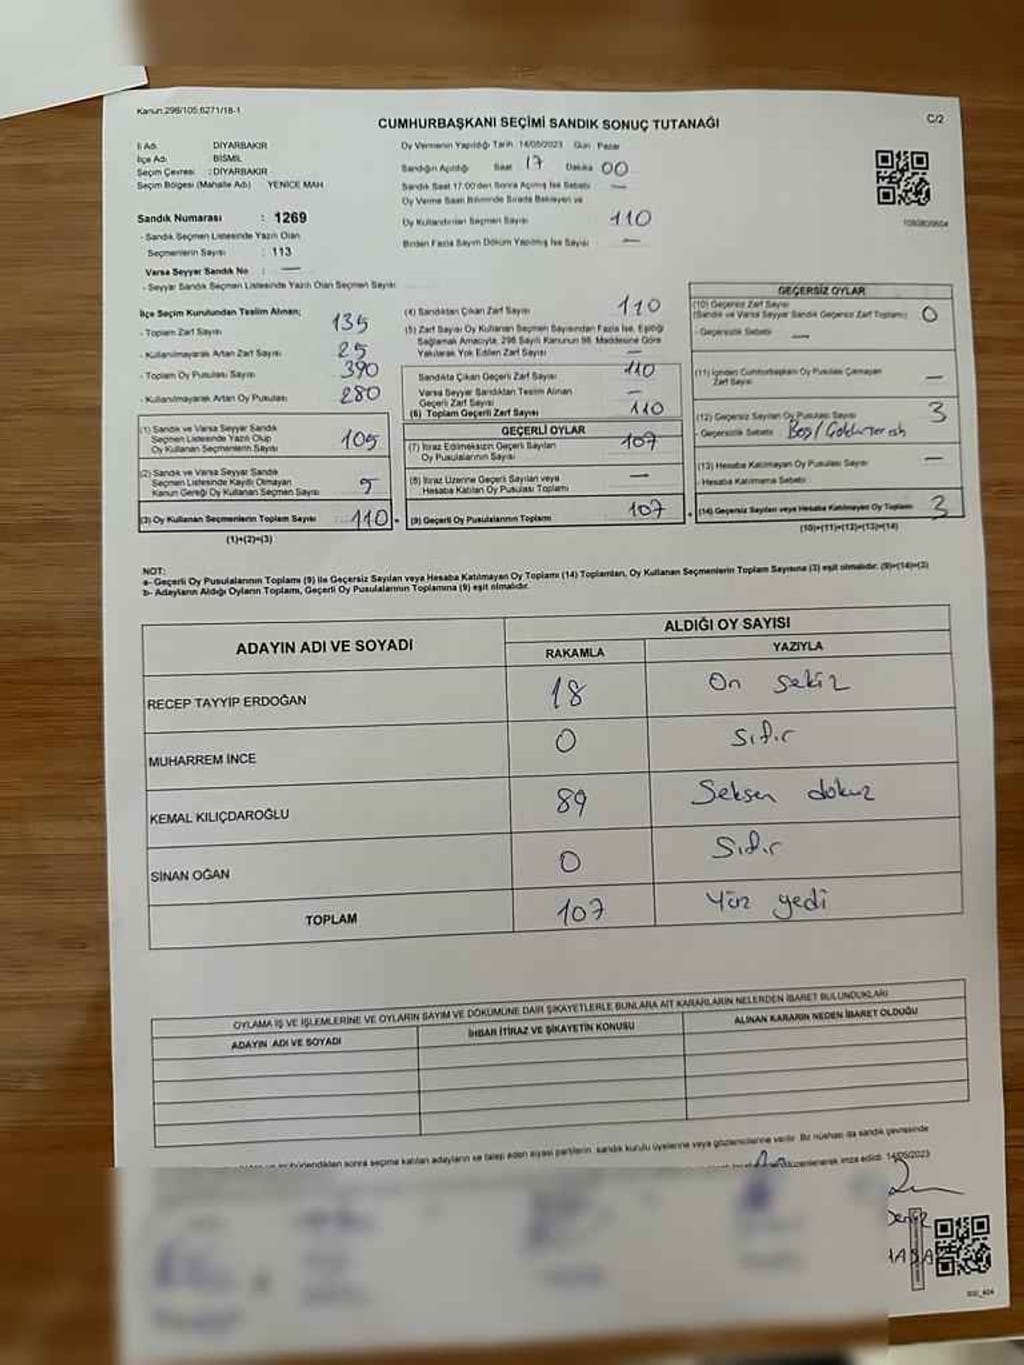 Kanun:298/105;6271/18-1
C/2
CUMHURBAŞKANI SEÇİMİ SANDIK SONUÇ TUTANAĞI
İl Adı DİYARBAKIR
İlçe Adı BİSMİL
Seçim Çevresi : DİYARBAKIR
Seçim Bölgesi (Mahalle Adı) YENİCE MAH
Sandık Numarası : 1269
- Sandık Seçmen Listesinde Yazılı Olan
Seçmenlerin Sayısı : 113
Varsa Seyyar Sandık No : —
- Seyyar Sandık Seçmen Listesinde Yazılı Olan Seçmen Sayısı
Oy Vermenin Yapıldığı Tarih 14/05/2023 Gün Pazar
Sandığın Açıldığı Saat 17 Dakika 00
Sandık Saat 17.00'den Sonra Açılmış İse Sebebi —
Oy Verme Saati Bitiminde Sırada Bekleyen ve
Oy Kullandırılan Seçmen Sayısı 110
Birden Fazla Sayım Döküm Yapılmış İse Sayısı —
İlçe Seçim Kurulundan Teslim Alınan;
- Toplam Zarf Sayısı 135
- Kullanılmayarak Artan Zarf Sayısı 25
- Toplam Oy Pusulası Sayısı 390
- Kullanılmayarak Artan Oy Pusulası 280
(1) Sandık ve Varsa Seyyar Sandık
Seçmen Listesinde Yazılı Olup
Oy Kullanan Seçmenlerin Sayısı 105
(2) Sandık ve Varsa Seyyar Sandık
Seçmen Listesinde Kayıtlı Olmayan
Kanun Gereği Oy Kullanan Seçmen Sayısı 5
(3) Oy Kullanan Seçmenlerin Toplam Sayısı 110
(1)+(2)=(3)
(4) Sandıktan Çıkan Zarf Sayısı 110
(5) Zarf Sayısı Oy Kullanan Seçmen Sayısından Fazla İse, Eşitliği
Sağlamak Amacıyla, 298 Sayılı Kanunun 98. Maddesine Göre
Yakılarak Yok Edilen Zarf Sayısı —
Sandıkta Çıkan Geçerli Zarf Sayısı 110
Varsa Seyyar Sandıktan Teslim Alınan
Geçerli Zarf Sayısı —
(6) Toplam Geçerli Zarf Sayısı 110
GEÇERLİ OYLAR
(7) İtiraz Edilmeksizin Geçerli Sayılan
Oy Pusulalarının Sayısı 107
(8) İtiraz Üzerine Geçerli Sayılan veya
Hesaba Katılan Oy Pusulası Toplamı —
(9) Geçerli Oy Pusulalarının Toplamı 107
GEÇERSİZ OYLAR
(10) Geçersiz Zarf Sayısı
(Sandık ve Varsa Seyyar Sandık Geçersiz Zarf Toplamı) 0
- Geçersizlik Sebebi —
(11) İçinden Cumhurbaşkanı Oy Pusulası Çıkmayan
Zarf Sayısı —
(12) Geçersiz Sayılan Oy Pusulası Sayısı 3
- Geçersizlik Sebebi Boş/
(13) Hesaba Katılmayan Oy Pusulası Sayısı —
- Hesaba Katılmama Sebebi
(14) Geçersiz Sayılan veya Hesaba Katılmayan Oy Toplamı 3
(10)+(11)+(12)+(13)=(14)
NOT:
a- Geçerli Oy Pusulalarının Toplamı (9) ile Geçersiz Sayılan veya Hesaba Katılmayan Oy Toplamı (14) Toplamları, Oy Kullanan Seçmenlerin Toplam Sayısına (3) eşit olmalıdır. (9)+(14)=(3)
b- Adayların Aldığı Oyların Toplamı, Geçerli Oy Pusulalarının Toplamına (9) eşit olmalıdır.
ADAYIN ADI VE SOYADI
ALDIĞI OY SAYISI
RAKAMLA YAZIYLA
RECEP TAYYİP ERDOĞAN 18 On sekiz
MUHARREM İNCE 0 Sıfır
KEMAL KILIÇDAROĞLU 89 Seksen dokuz
SİNAN OĞAN 0 Sıfır
TOPLAM 107 Yüz yedi
OYLAMA İŞ VE İŞLEMLERİNE VE OYLARIN SAYIM VE DÖKÜMÜNE DAİR ŞİKAYETLERLE BUNLARA AİT KARARLARIN NELERDEN İBARET BULUNDUKLARI
ADAYIN ADI VE SOYADI İHBAR İTİRAZ VE ŞİKAYETİN KONUSU ALINAN KARARIN NEDEN İBARET OLDUĞU
sonra seçime katılan adayların ve talep eden siyasi partilerin sandık kurulu üyelerine veya gözlemcilerine verilir. Bir nüshası da sandık çevresinde
düzenlenerek imza edildi. 14/05/2023